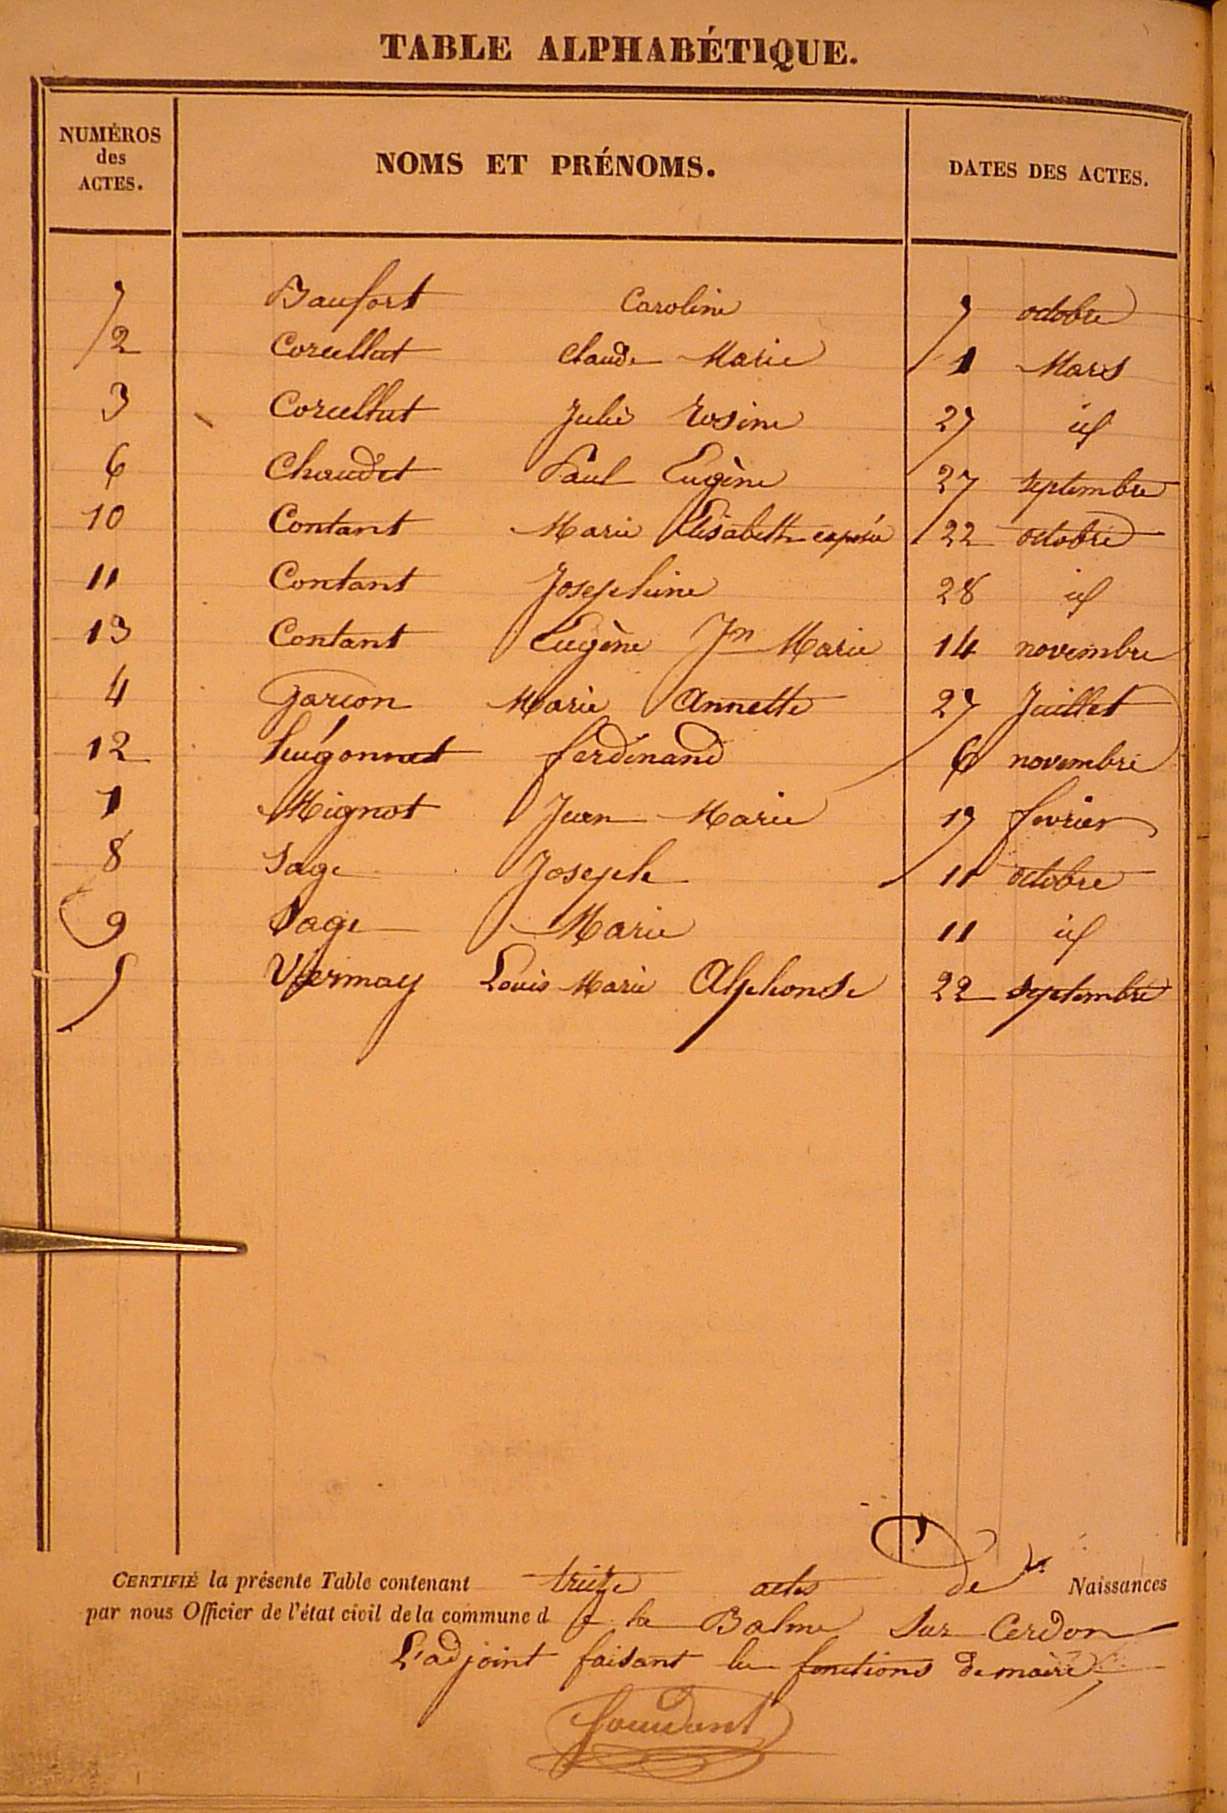 TABLE ALPHABÉTIQUE.
NUMÉROS des ACTES. NOMS ET PRÉNOMS. DATES DES ACTES.
7 Baufort Caroline 7 octobre
2 Corcellut Claude Marie 1 Mars
3 Corcellut Julie Rosine 27 id
6 Chaudet Paul Eugène 27 septembre
10 Contant Marie Elisabeth exposée 22 octobre
11 Contant Josephine 28 id
13 Contant Eugène Jn Marie 14 novembre
4 Garcon Marie Annette 27 Juillet
12 Huugonnet ferdinand 6 novembre
1 Mignot Jean Marie 19 fevrier
8 Sage Joseph 11 octobre
9 Sage Marie 11 id
5 Vermay Louis Marie Alphonse 22 septembre
CERTIFIÉ la présente Table contenant treize actes de Naissances
par nous Officier de l'état civil de la commune de la Balme Sur Cerdon
L'adjoint faisant les fonctions de maire